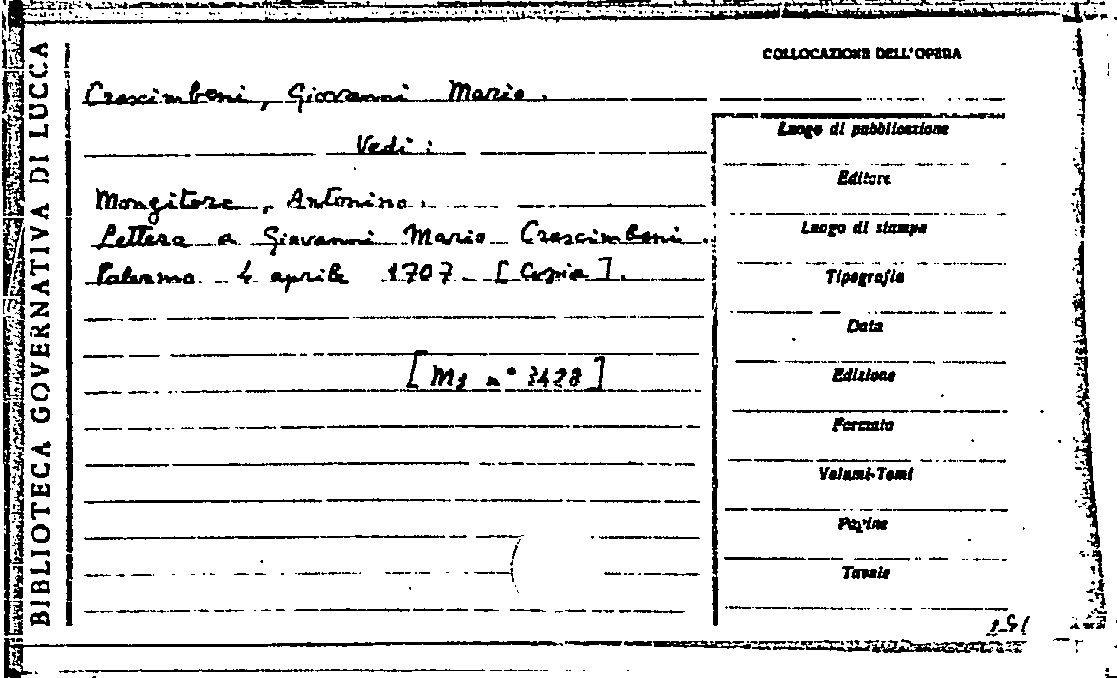 BIBLIOTECA GOVERNATIVA DI LUCCA
COLLOCAZIONE DELL'OPERA
Crescimbeni, Giovanni Mario.
Vedi:
Mongitore, Antonino.
Lettera a Giovanni Mario Crescimbeni.
Palermo 4 aprile 1707 [Copia].
[Ms n° 3428]
Luogo di pubblicazione
Editore
Luogo di stampa
Tipografia
Data
Edizione
Formato
Volumi-Tomi
Pagine
Tavole